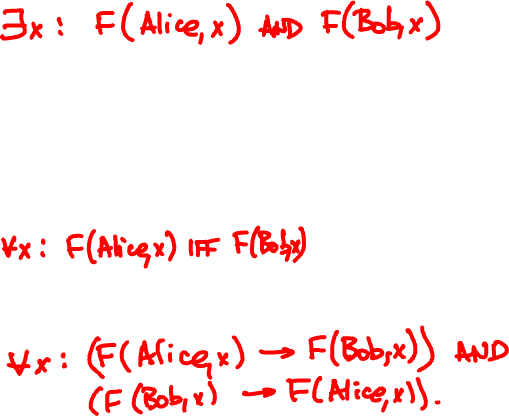 ∃x: F(Alice, x) AND F(Bob, x)
∀x: F(Alice, x) IFF F(Bob, x)
∀x: (F(Alice, x) → F(Bob, x)) AND
(F(Bob, x) → F(Alice, x)).